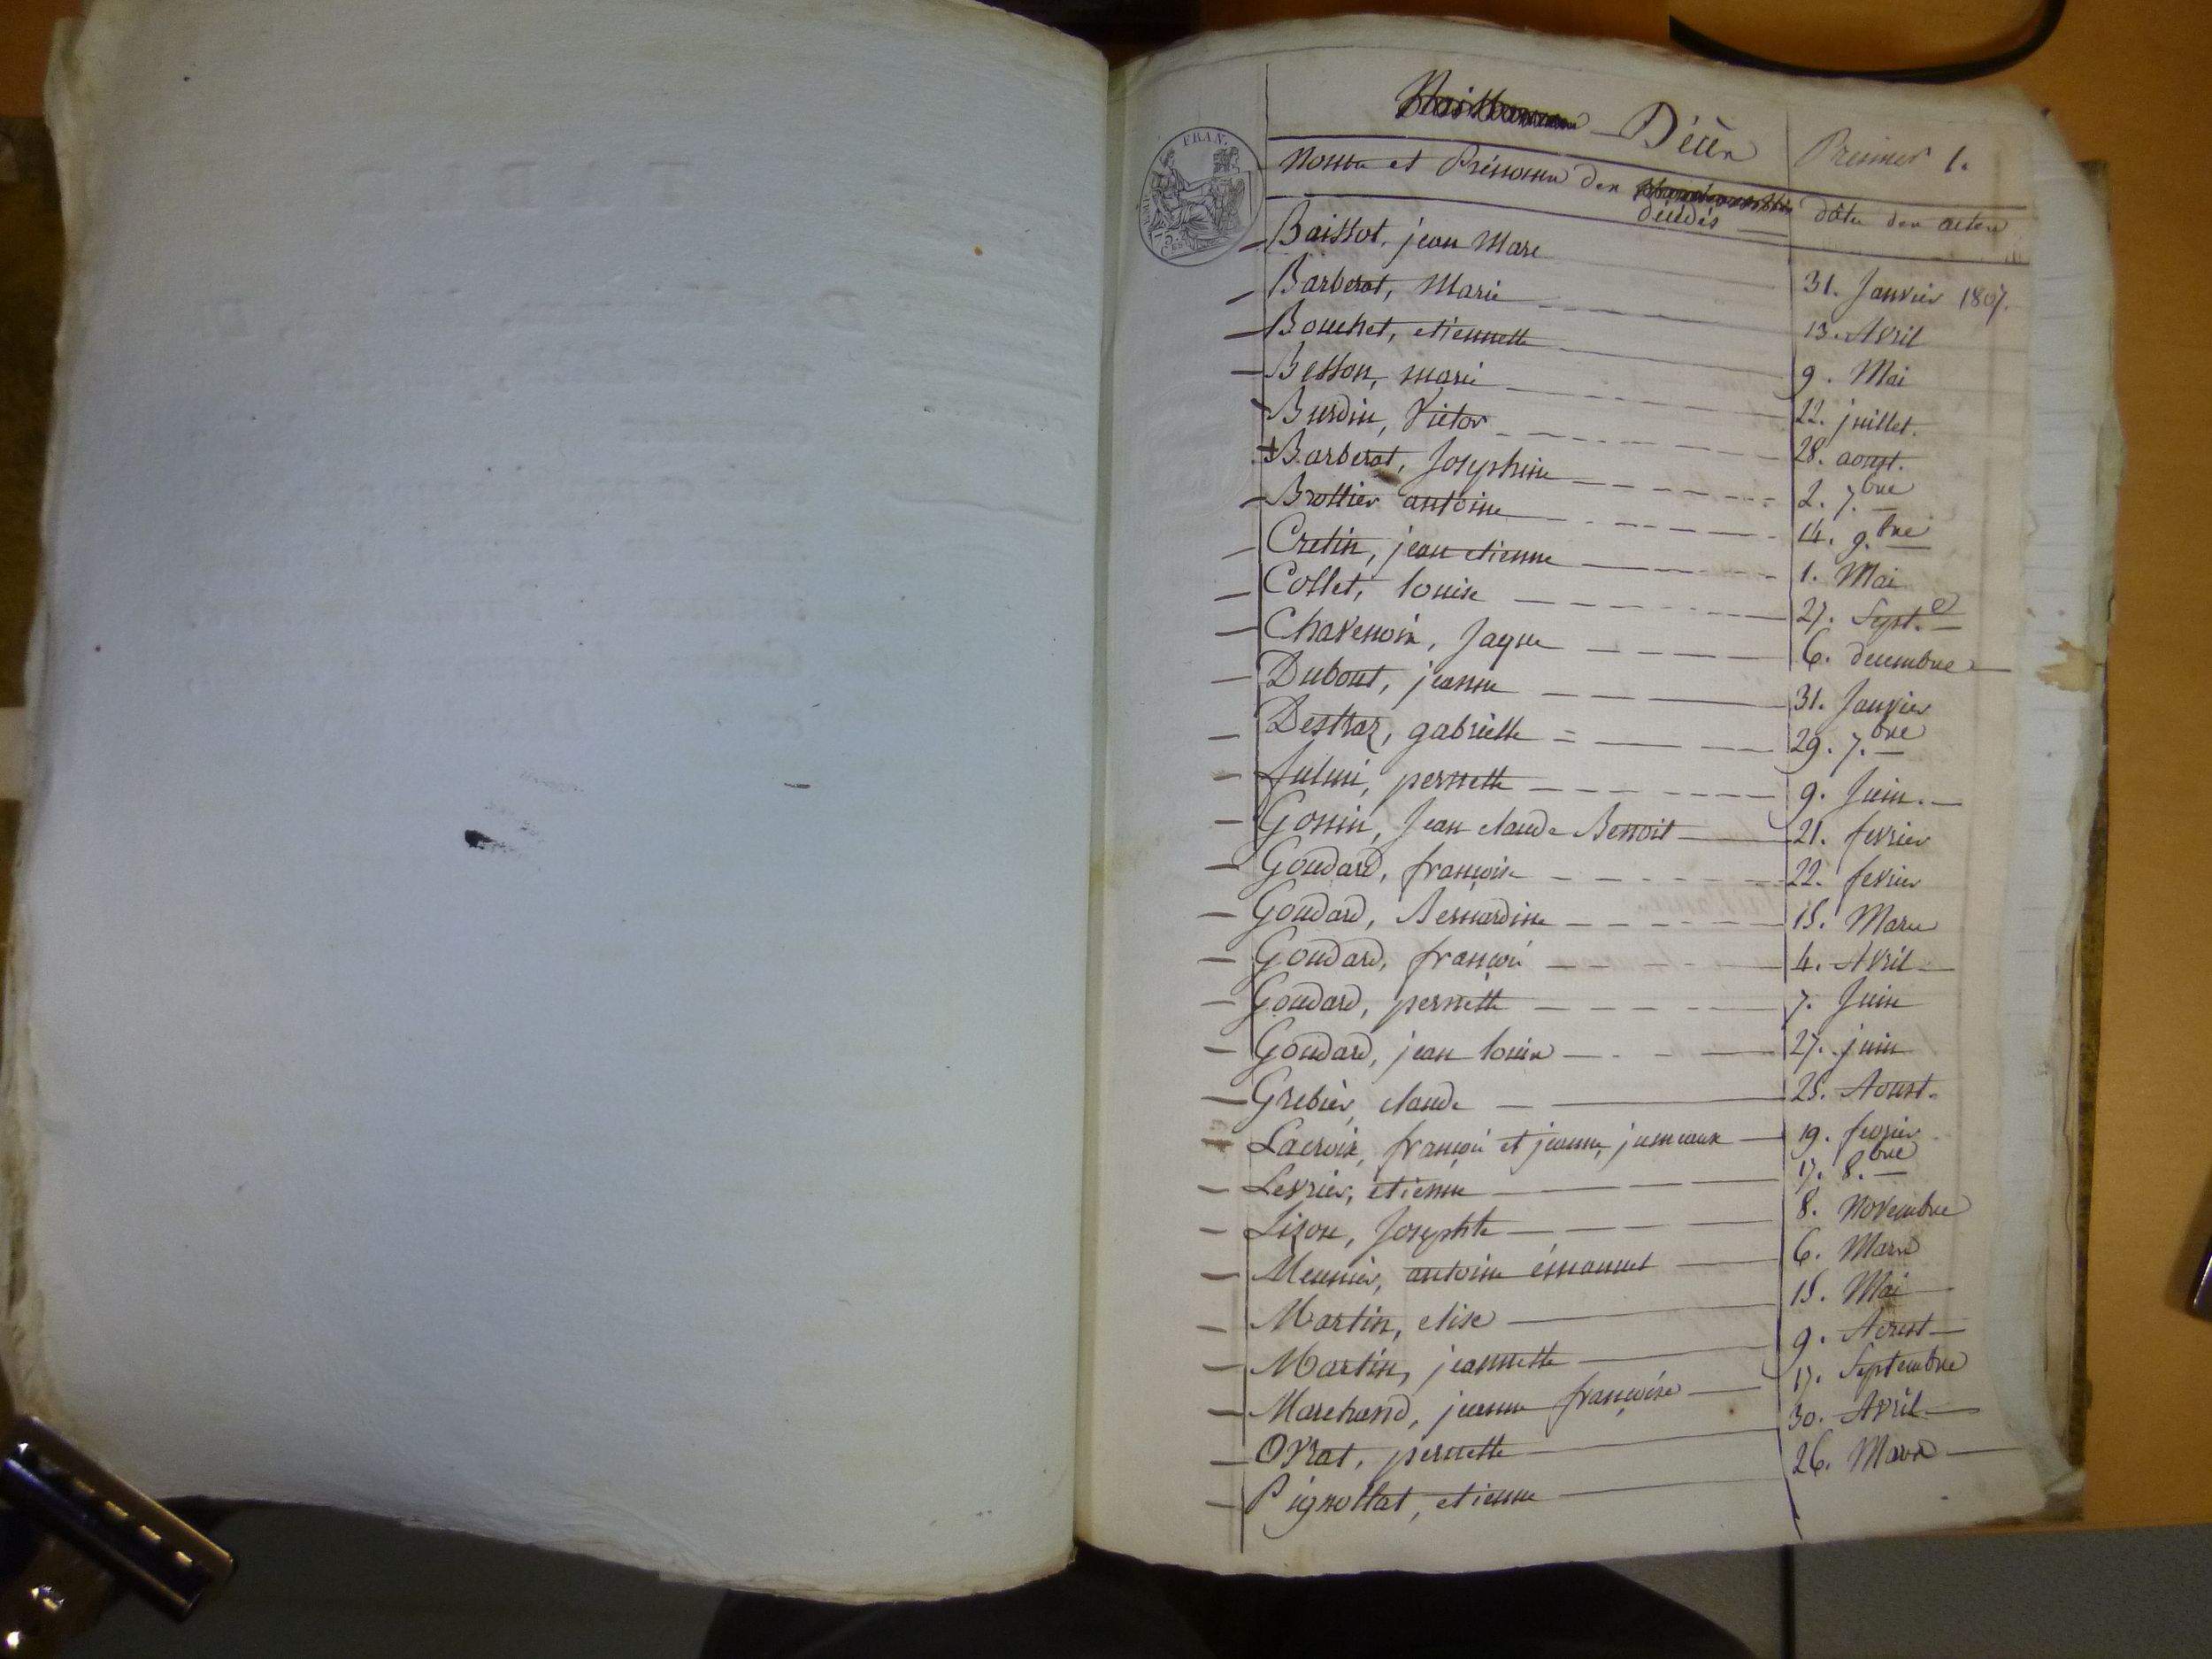 Décès Premier 1.
Noms et Prénoms des décédés dâte des actes
Baissot, jean Marc 31. Janvier 1807.
Barberot, Marie 13. Avril
Bouchet, etiennette 9. Mai
Besson, marie 22. juillet.
Burdin, Victor 28. aoust.
Barberot, Josephine 2. 7.bre
Brottier antoine 14. 9.bre
Cretin, jean etienne 1. Mai
Collet, louise 27. Sept.e
Chavenoin, Jaque 6. decembre
Dubout, jeanne 31. Janvier
Destraz, gabrielle 29. 7.bre
pernette 9. Juin.
Gonin, Jean claude Benoit 21. fevrier
Goudard, françoise 22. fevrier
Goudard, Bernardine 15. Mars
Goudard, françois 4. Avril
Goudard, pernette 7. Juin
Goudard, jean louis 27. juin
Grebier, claude 25. Aoust.
Lacroix, françois et jeanne, jumeaux 19. fevrier
Levrier, etienne 17. 8.bre
Lizon, Josephte 8. Novembre
Meunier, antoine émanuel 6. Mars
Martin, elise 15. Mai
Martin, jeannette 9. Aoust
Marchand, jeanne françoise 17. Septembre
Ovrat, pernette 30. Avril
Pignollat, etienne 26. Mars